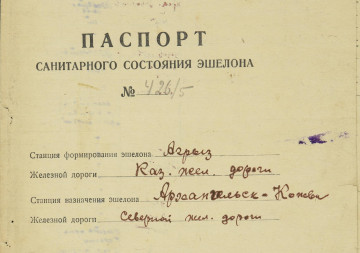 ПАСПОРТ
САНИТАРНОГО СОСТОЯНИЯ ЭШЕЛОНА
№ 426/5
Станция формирования эшелона Агрыз
Железной дороги Каз. жел. дороги
Станция назначения эшелона Архангельск-
Железной дороги Северной жел. дороги